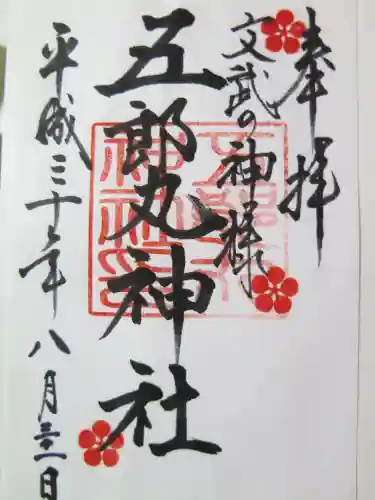 奉拝
文武の神様
五郎丸神社
平成三十年八月三十一日